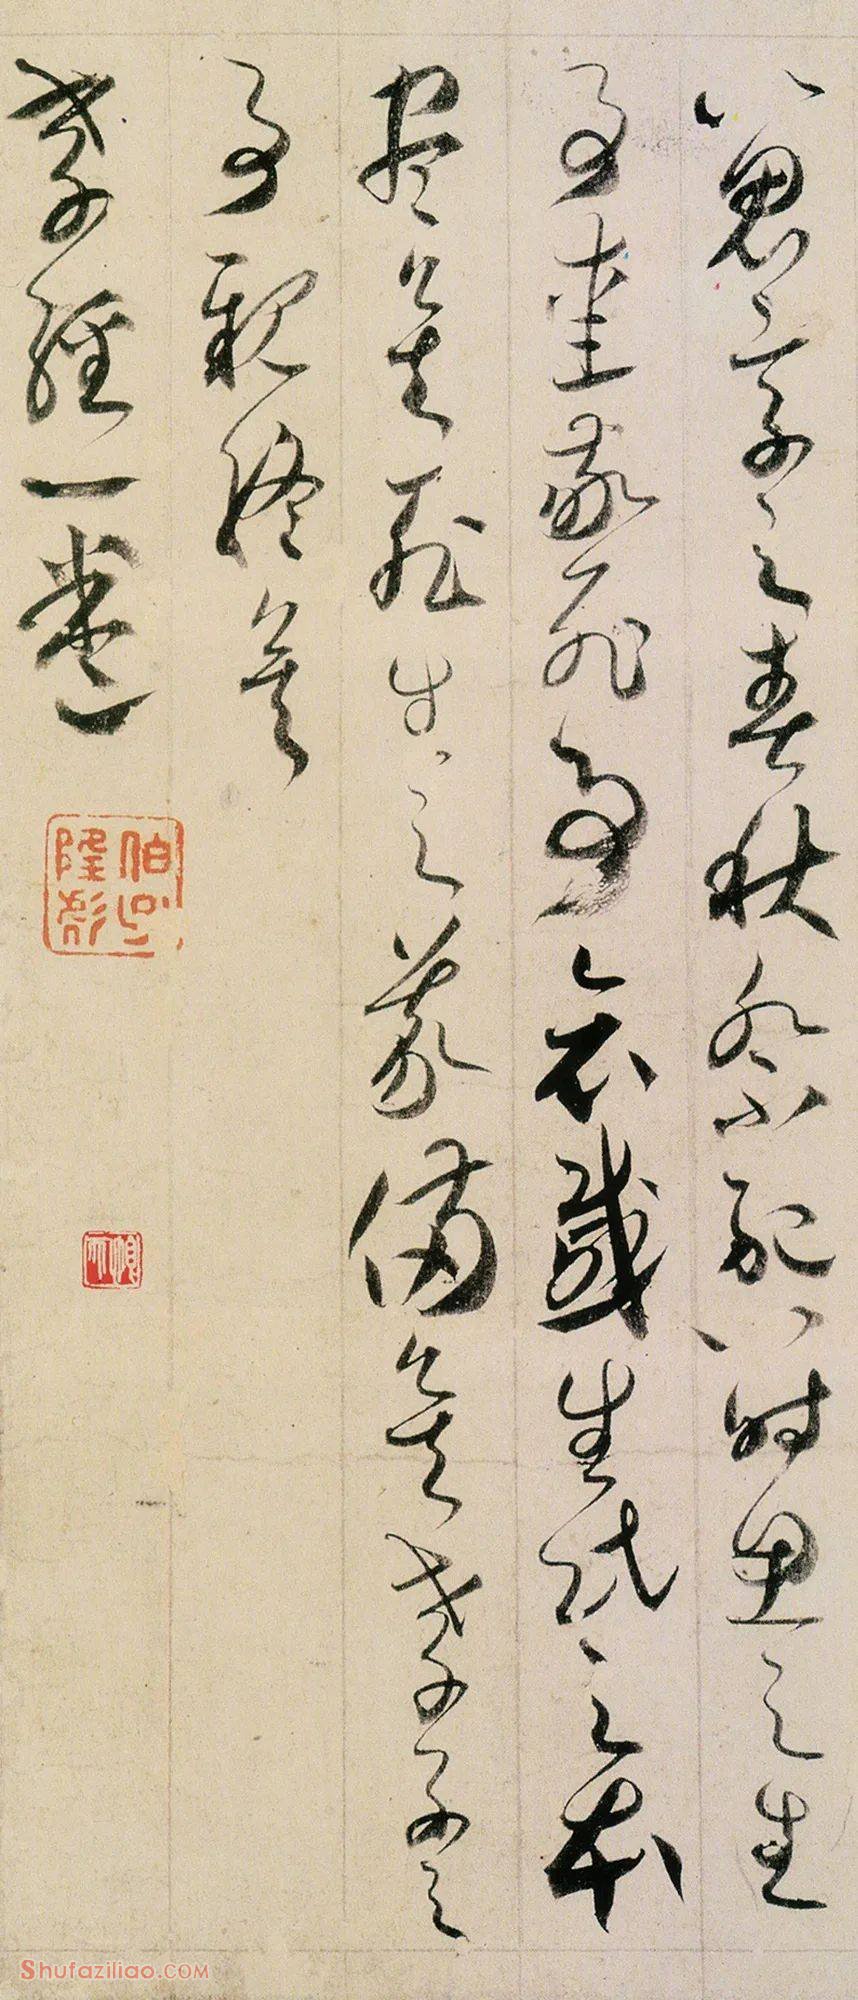 以鬼享之春秋祭祀以時思之生
事愛敬死事哀慼生民之本
盡矣死生之義備矣孝子之
事親終矣
孝經一卷
Shufaziliao.COM